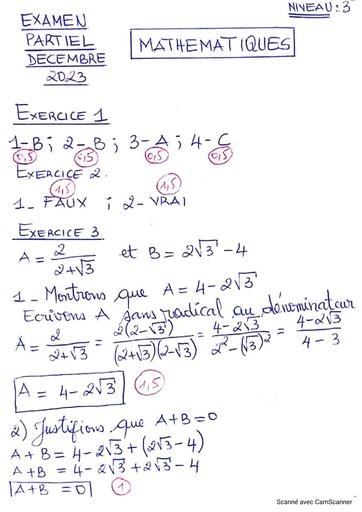 EXAMEN
PARTIEL
DECEMBRE
2023
NIVEAU: 3
MATHEMATIQUES
EXERCICE 1
1-B ; 2-B ; 3-A ; 4-C
0,5 0,5 0,5 0,5
EXERCICE 2.
1,5 1,5
1_ FAUX ; 2-VRAI
EXERCICE 3
A = 2/(2+√3) et B = 2√3 - 4
1_ Montrons que A = 4-2√3
Ecrivons A sans radical au dénominateur
A = 2/(2+√3) = 2(2-√3)/((2+√3)(2-√3)) = (4-2√3)/(2²-(√3)²) = (4-2√3)/(4-3)
A = 4-2√3 1,5
2) Justifions que A+B=0
A+B = 4-2√3+(2√3-4)
A+B = 4-2√3+2√3-4
A+B = 0 1
Scanné avec CamScanner